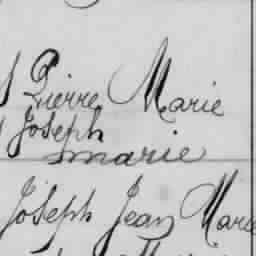 Pierre Marie
Joseph
marie
Joseph Jean Marie